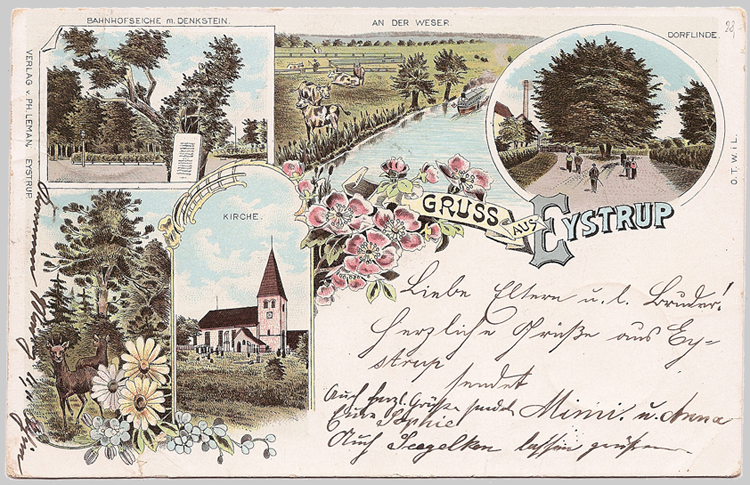 BAHNHOFSEICHE M. DENKSTEIN.
AN DER WESER.
DORFLINDE.
28
VERLAG V. PH. LEMAN, EYSTRUP.
O.T.W.i.L.
KIRCHE.
GRUSS AUS EYSTRUP
Liebe Eltern u. l. Bruder!
Herzliche Grüße aus Ey-
strup
sendet
Mimi. u. Anna
Auch herzl. Grüße sendet
Eure Sophie
Auch lassen grüßen